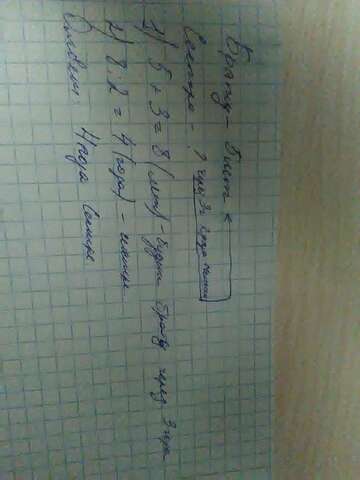 Брату - 5 лет
Сестре - ? через 3 года
1) 5 + 3 = 8 (лет) - будет брату через 3 года
2) 8 : 2 = 4 (года) - сестре
Ответ: 4 года сестре